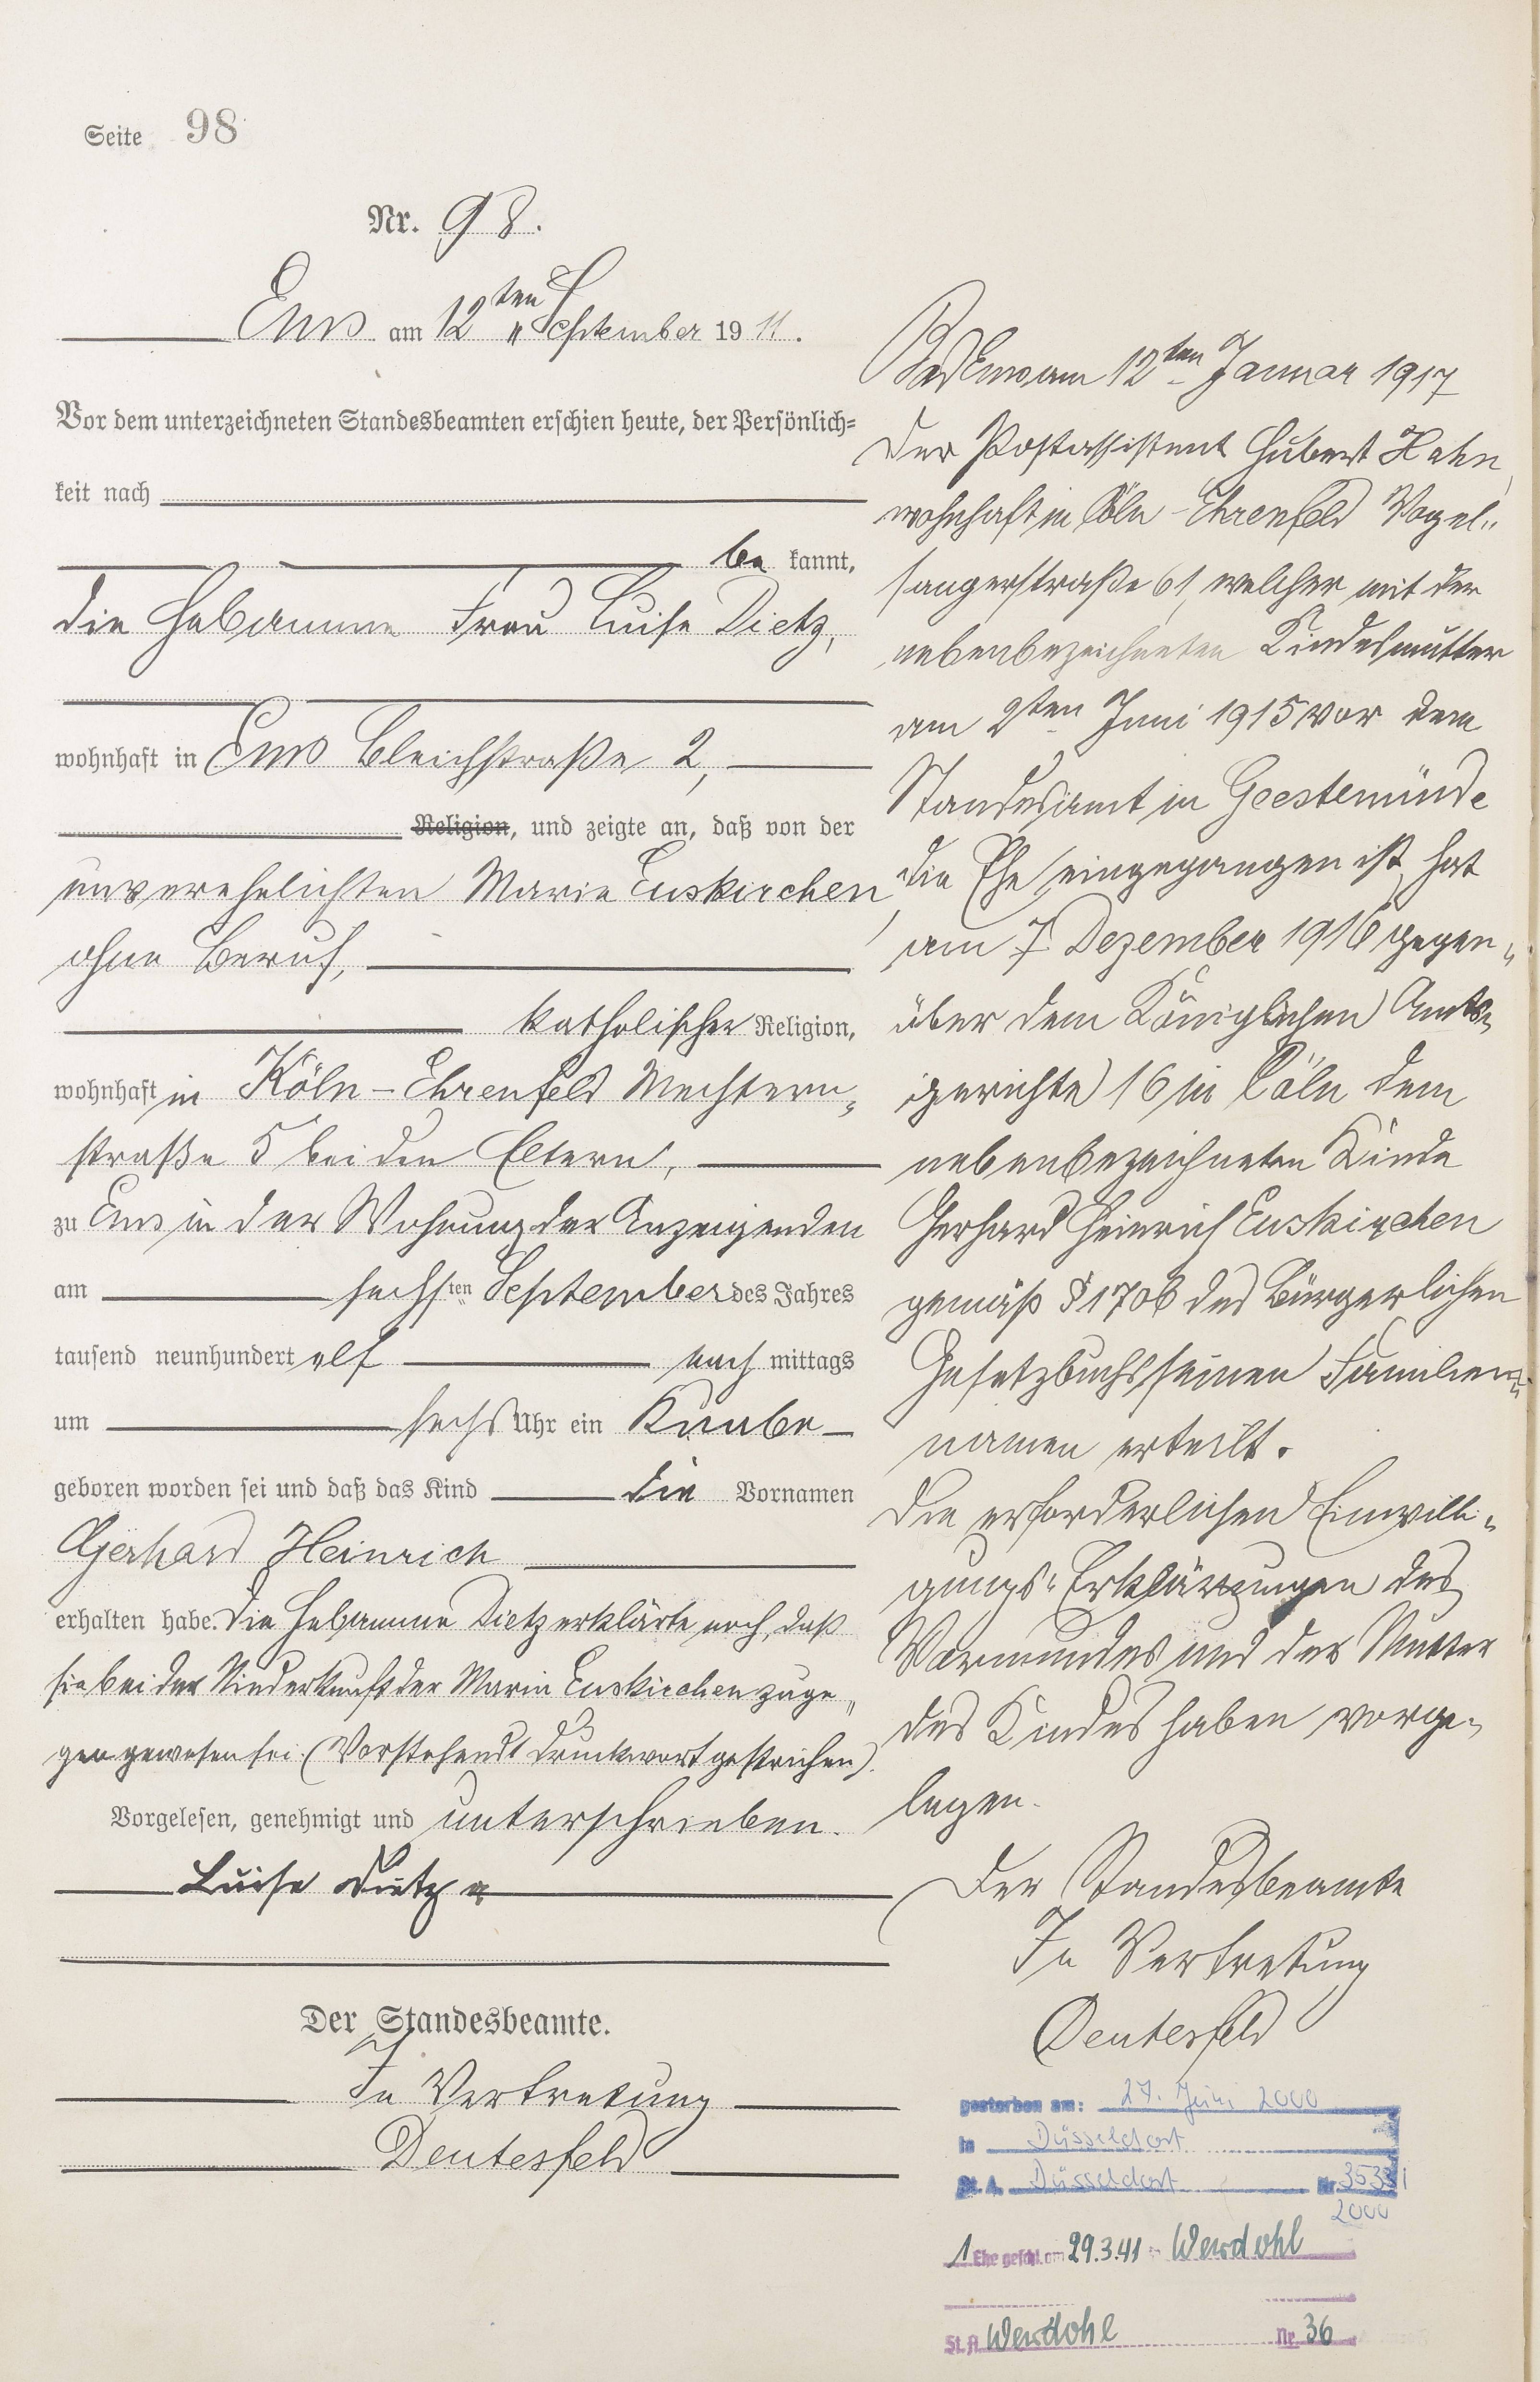 Seite 98
Nr. 98.
Ems am 12ten September 1911.
Vor dem unterzeichneten Standesbeamten erschien heute, der Persönlich=
keit nach
be kannt,
die Hebamme Frau Luise Dietz,
wohnhaft in Ems Bleichstraße 2,
Religion, und zeigte an, daß von der
unverehelichten Maria Euskirchen,
ohne Beruf,
katholischer Religion,
wohnhaft in Köln-Ehrenfeld Mechtern=
straße 5 bei den Eltern,
zu Ems in der Wohnung der Anzeigenden
am sechsten September des Jahres
tausend neunhundert elf nach mittags
um sechs Uhr ein Knabe
geboren worden sei und daß das Kind die Vornamen
Gerhard Heinrich
erhalten habe. Die Hebamme Dietz erklärte noch, daß
sie bei der Niederkunft der Maria Euskirchen zuge=
gen gewesen sei. (Vorstehend 1 Druckwort gestrichen).
Vorgelesen, genehmigt und unterschrieben.
Luise Dietz
Der Standesbeamte.
In Vertretung
Deutesfeld
Bad Ems am 12ten Januar 1917
Der Postassistent Hubert Hahn,
wohnhaft in Cöln-Ehrenfeld Vogel=
sangerstraße 61, welcher mit der
nebenbezeichneten Kindesmutter
am 2ten Juni 1915 vor dem
Standesamt in Geestemünde
die Ehe eingegangen ist, hat
am 7. Dezember 1916 gegen=
über dem Königlichen Amts=
gerichte 16 in Cöln dem
nebenbezeichneten Kinde
Gerhard Heinrich Euskirchen
gemäß § 1706 des Bürgerlichen
Gesetzbuchs seinen Familien=
namen erteilt.
Die erforderlichen Einwilli=
gungs=Erklärungen des
Vormundes und der Mutter
des Kindes haben vorge=
legen.
Der Standesbeamte
In Vertretung
Deutesfeld
gestorben am: 27. Juni 2000
in Düsseldorf
St. A. Düsseldorf Nr.
2000
1 Ehe geschl. am 29.3.41 in Werdohl
St. A. Werdohl Nr. 36